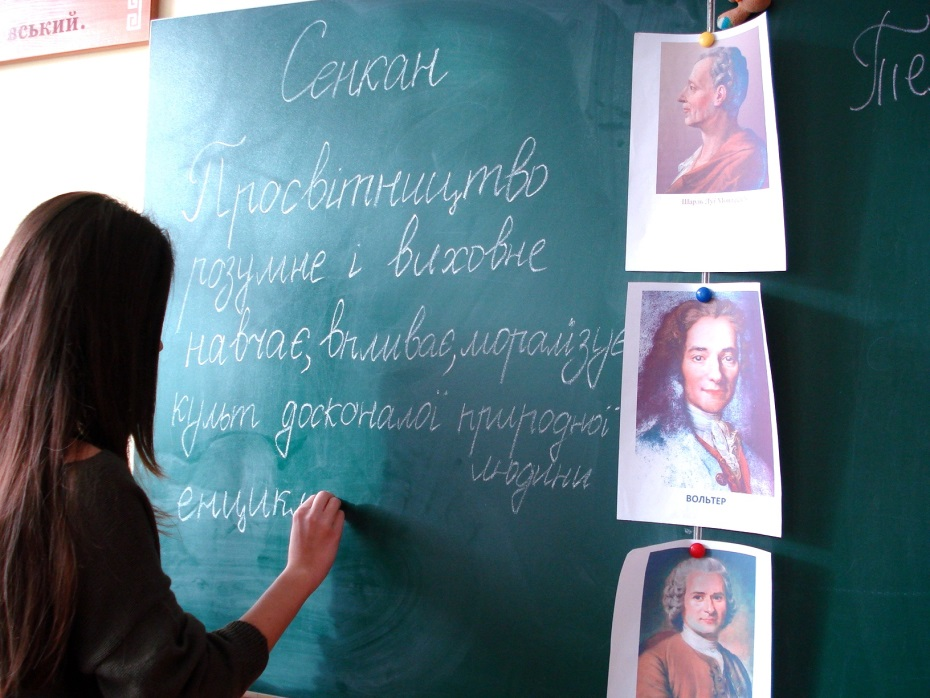 вський.
Сенкан
Просвітництво
розумне і виховне
навчає, впливає, моралізує
культ досконалої природної
людини
енцикл
Те
Шарль Луї
ВОЛЬТЕР